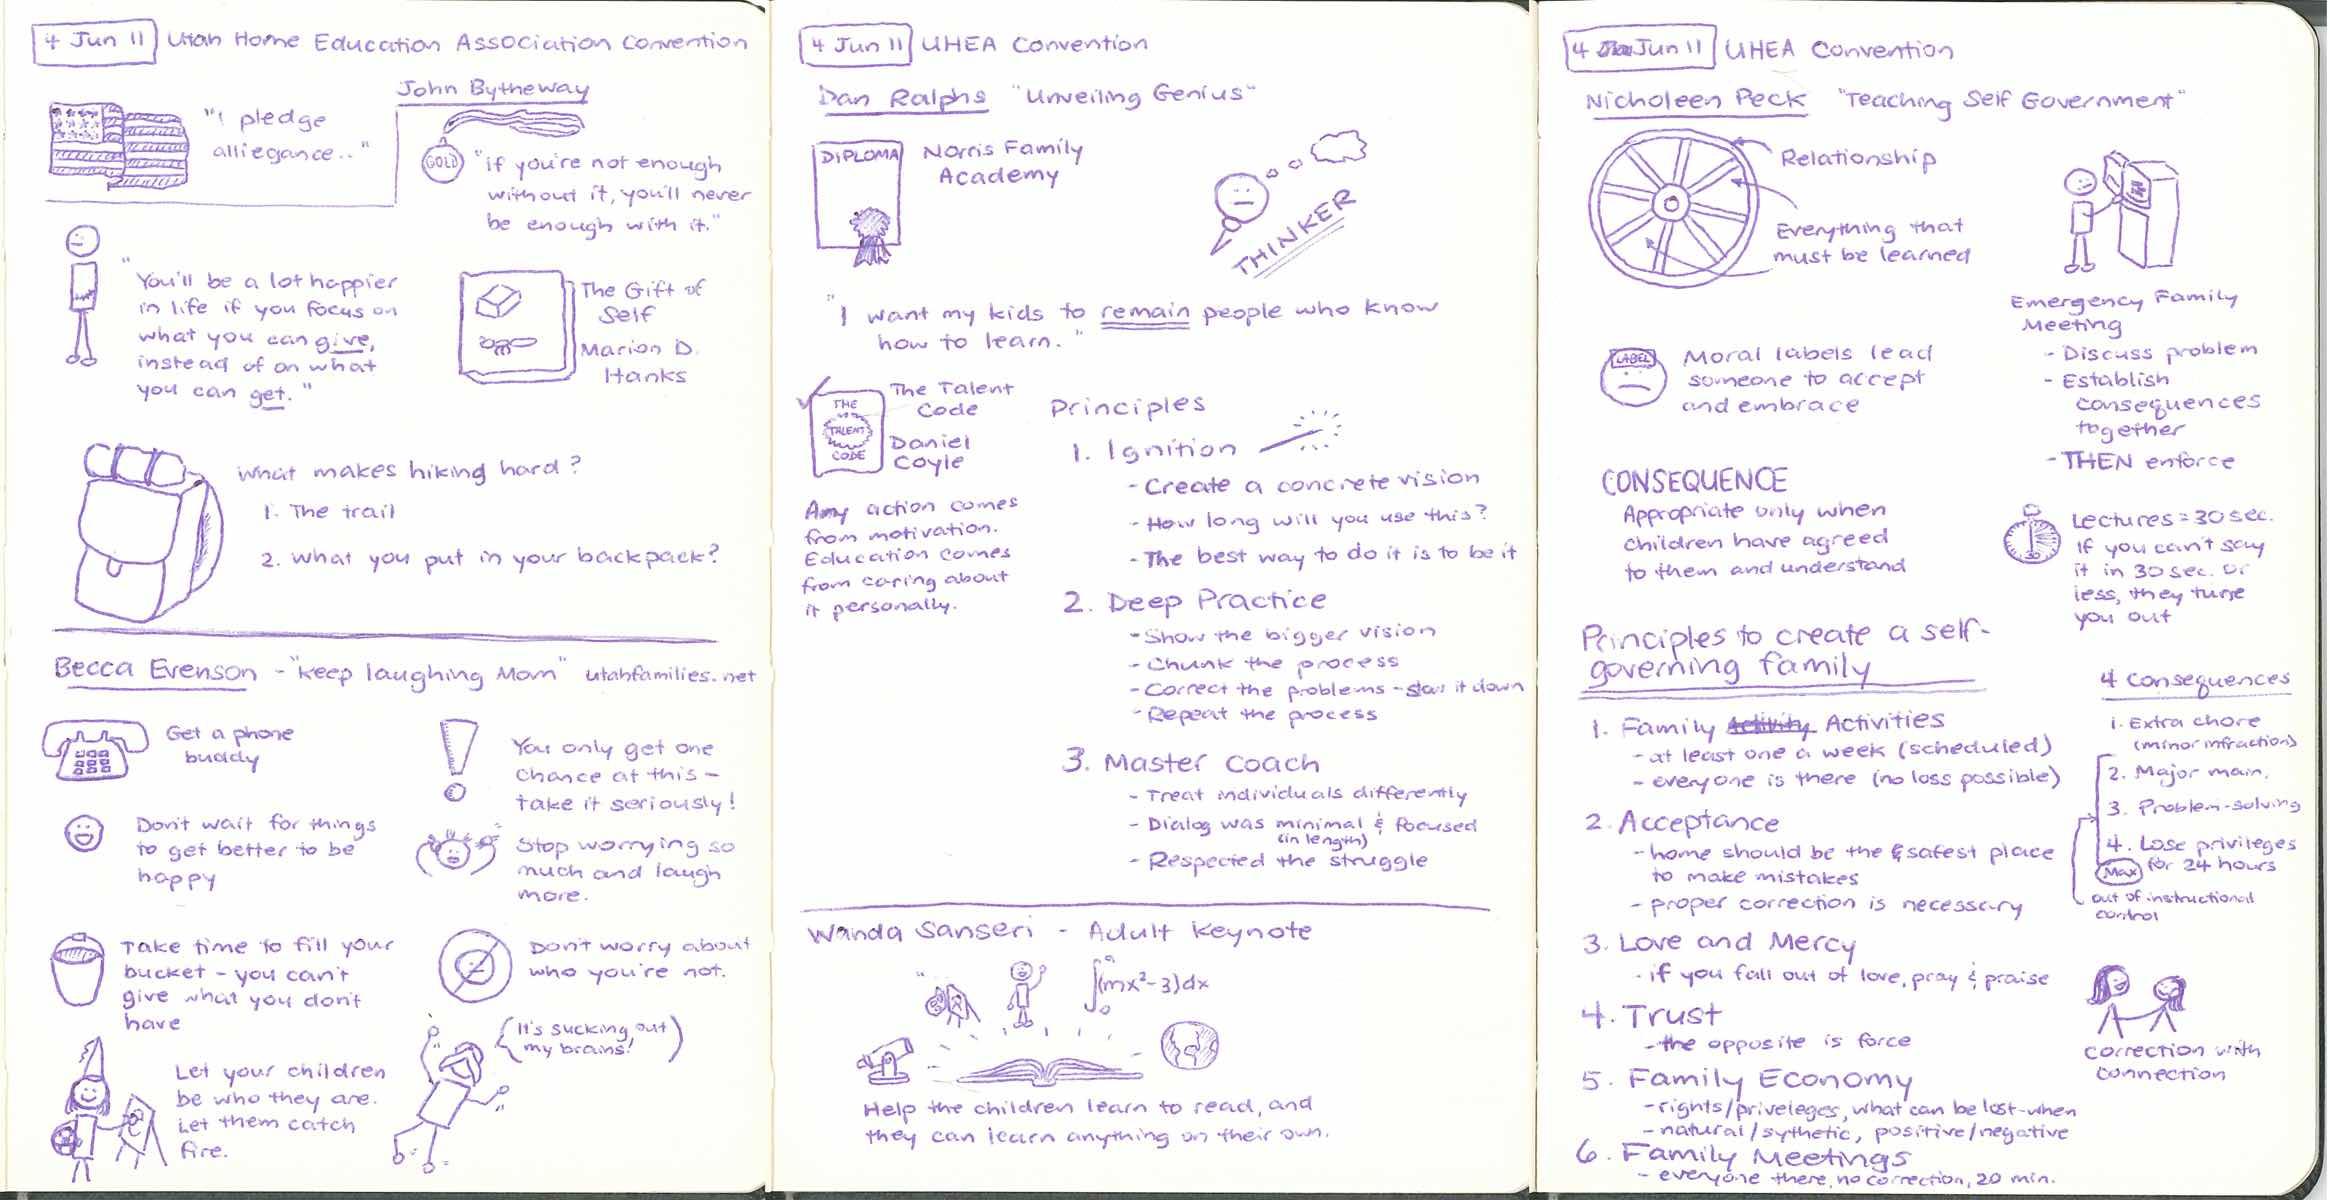 4 Jun 11 Utah Home Education Association Convention
"I pledge
alliegance.."
John Bytheway
GOLD
"if you're not enough
without it, you'll never
be enough with it."
"You'll be a lot happier
in life if you focus on
what you can give,
instead of on what
you can get."
The Gift of
Self
Marion D.
Hanks
What makes hiking hard?
1. The trail
2. What you put in your backpack?
Becca Evenson - "Keep laughing Mom" utahfamilies.net
Get a phone
buddy
You only get one
chance at this -
take it seriously!
Don't wait for things
to get better to be
happy
Stop worrying so
much and laugh
more.
Take time to fill your
bucket - you can't
give what you don't
have
Don't worry about
who you're not.
Let your children
be who they are.
Let them catch
fire.
(It's sucking out
my brains!)
4 Jun 11 UHEA Convention
Dan Ralphs "Unveiling Genius"
DIPLOMA
Norris Family
Academy
THINKER
"I want my kids to remain people who know
how to learn."
THE
TALENT
CODE
The Talent
Code
Daniel
Coyle
Any action comes
from motivation.
Education comes
from caring about
it personally.
Principles
1. Ignition
- Create a concrete vision
- How long will you use this?
- The best way to do it is to be it
2. Deep Practice
- Show the bigger vision
- Chunk the process
- Correct the problems - slow it down
- Repeat the process
3. Master Coach
- Treat individuals differently
- Dialog was minimal & focused
(in length)
- Respected the struggle
Wanda Sanseri - Adult Keynote
∫(mx²-3)dx
Help the children learn to read, and
they can learn anything on their own.
4 Jun 11 UHEA Convention
Nicholeen Peck "Teaching Self Government"
Relationship
Everything that
must be learned
Emergency Family
Meeting
- Discuss problem
- Establish
consequences
together
- THEN enforce
LABEL
Moral labels lead
someone to accept
and embrace
CONSEQUENCE
Appropriate only when
children have agreed
to them and understand
Lectures = 30 sec.
If you can't say
it in 30 sec. or
less, they tune
you out
Principles to create a self-
governing family
1. Family Activities
- at least one a week (scheduled)
- everyone is there (no loss possible)
2. Acceptance
- home should be the safest place
to make mistakes
- proper correction is necessary
3. Love and Mercy
- if you fall out of love, pray & praise
4. Trust
- the opposite is force
5. Family Economy
- rights/priveleges, what can be lost-when
- natural/sythetic, positive/negative
6. Family Meetings
- everyone there, no correction, 20 min.
4 Consequences
1. Extra chore
(minor infraction)
2. Major main.
3. Problem-solving
4. Lose privileges
Max for 24 hours
out of instructional
control
Correction with
connection